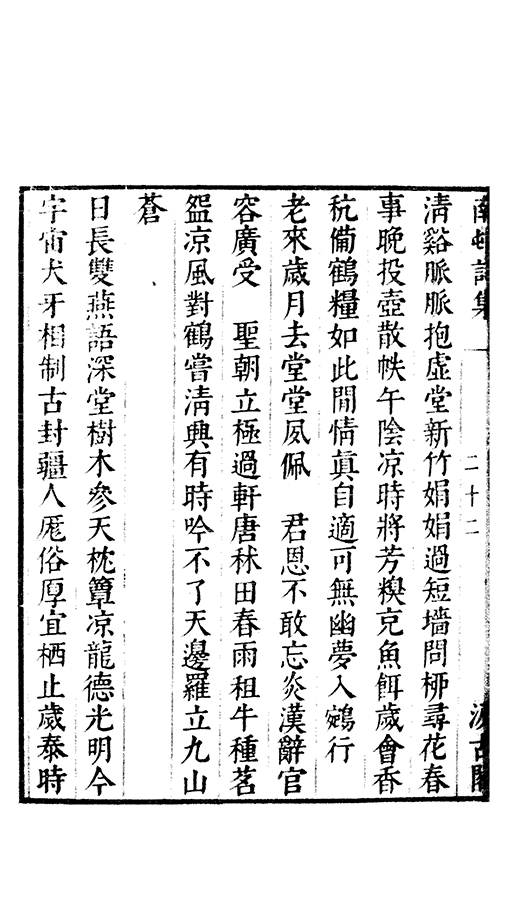 南村詩集 一 二十二 汲古閣
清谿脈脈抱虛堂新竹娟娟過短墻問柳尋花春
事晚投壺散帙午陰凉時將芳糗充魚餌歲會香
秔備鶴糧如此閒情眞自適可無幽夢入鵷行
老來歲月去堂堂夙佩 君恩不敢忘炎漢辭官
容廣受 聖朝立極過軒唐秫田春雨租牛種茗
盌凉風對鶴嘗清興有時吟不了天邊羅立九山
蒼
日長雙燕語深堂樹木參天枕簟凉龍德光明今
宇宙犬牙相制古封疆人厖俗厚宜栖止歲泰時